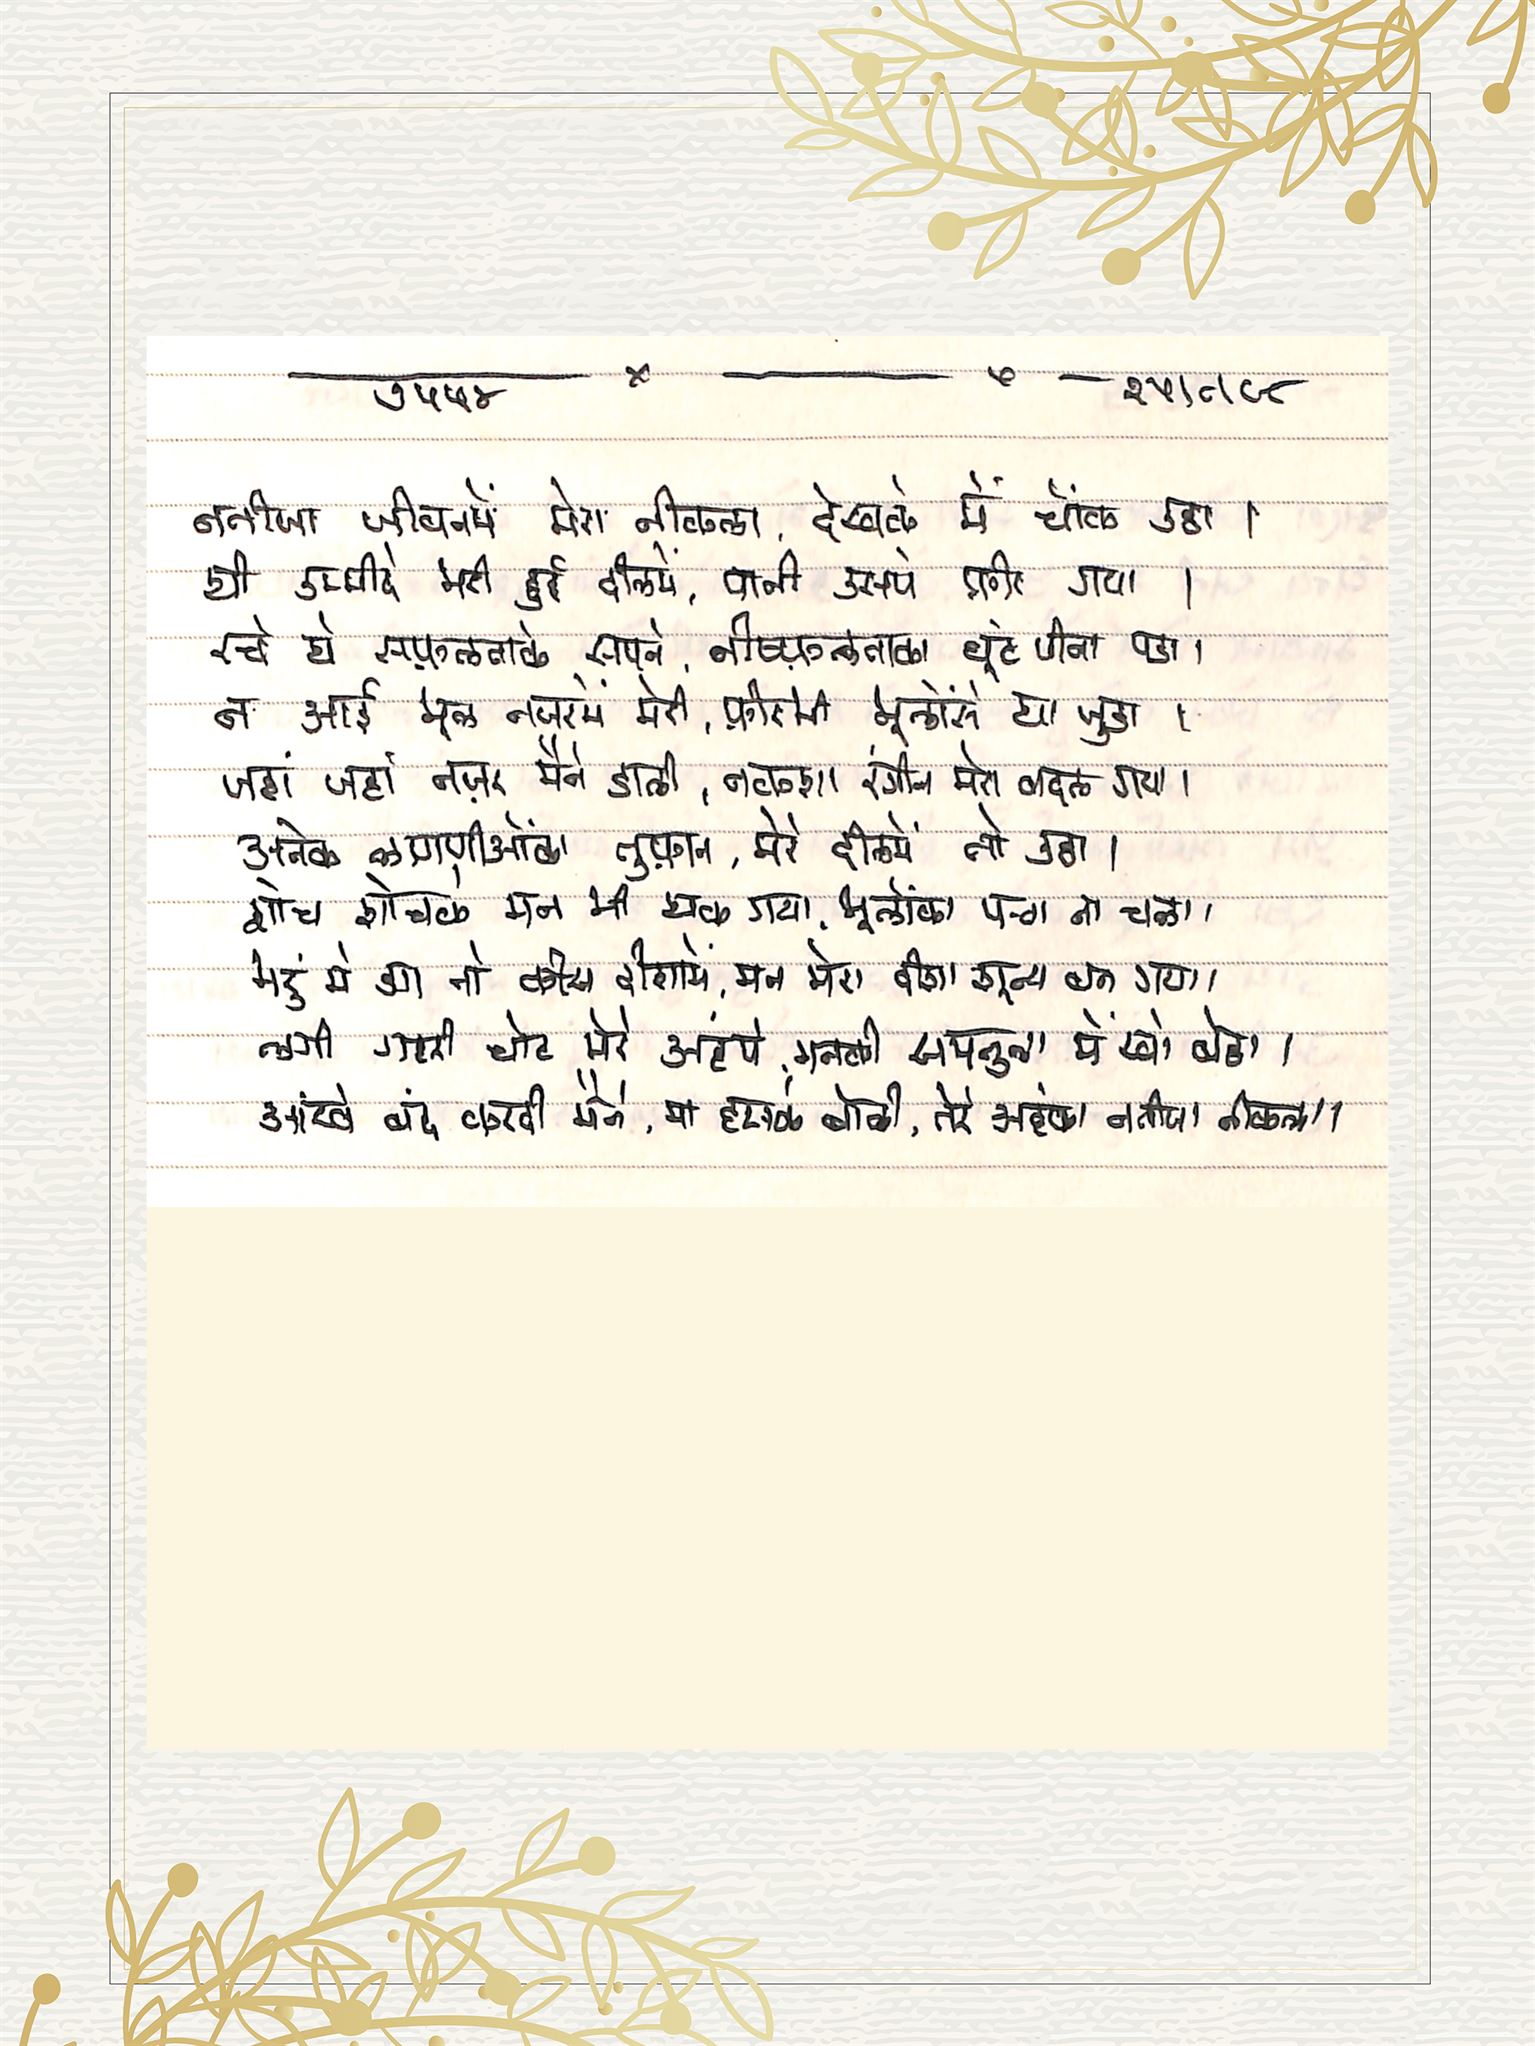 ७५५४ × ५ २५।८।९८
नतीजा जीवनमें मेरा नीकला, देखके में चोंक उठा ।
थी उम्मीदे भरी हुई दीलमें, पानी उसपे फीर गया ।
रचे थे सफ़लताके सपने, नीष्फ़लताका घूंट पीना पडा ।
न आई भूल नजरमें मेरी, फ़ीरभी भूलोंसे था जुडा ।
जहां जहां नज़र मैंने डाली, नकशा रंगीन मेरा बदल गया ।
अनेक लागणीओंका तुफ़ान, मेरे दीलमें तो उठा ।
शोच शोचके मन भी थक गया, भूलोंका पता ना चला ।
मुडुं में तो कीस दीशामें, मन मेरा दीशा शून्य बन गया ।
लगी गहरी चोट मेरे अहंपे, मनकी समतुला में खो बेठा ।
आंखे बंद करदी मैंने, मा हसके बोली, तेरे अहंका नतीजा नीकला ।